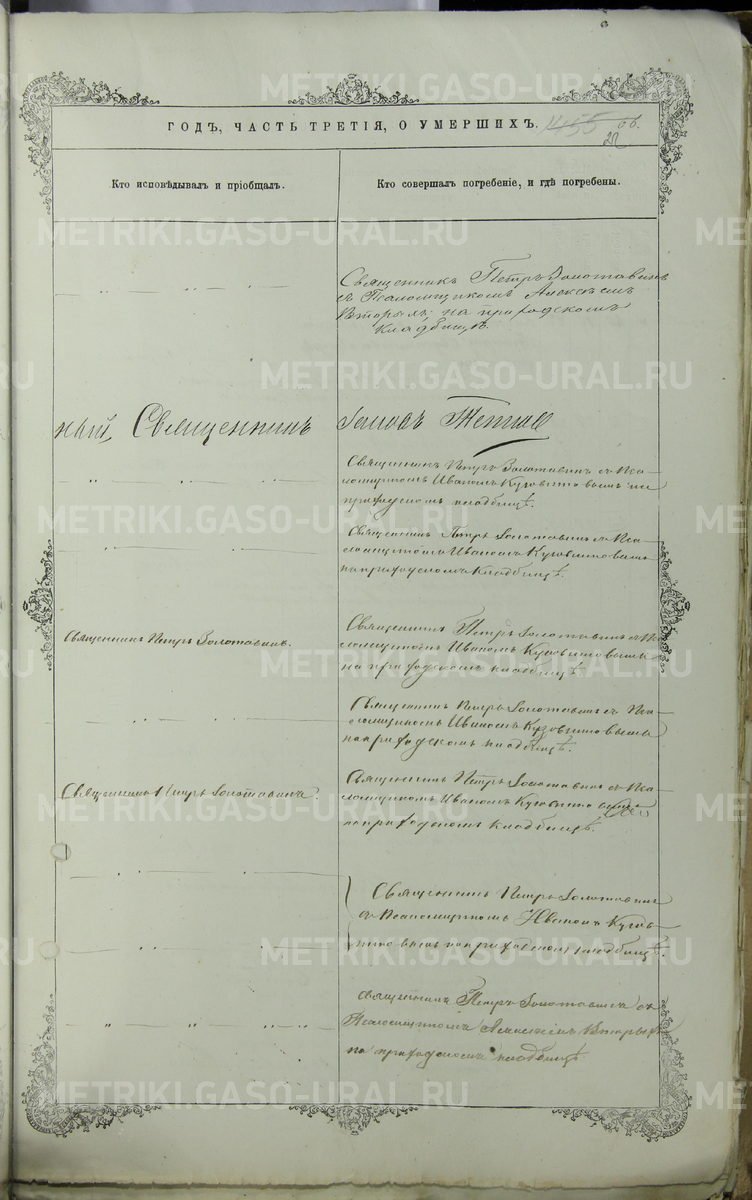 METRIKI.GASO-URAL.RU
ГОДЪ, ЧАСТЬ ТРЕТІЯ, О УМЕРШИХЪ.
Кто исповѣдывалъ и пріобщалъ.
Кто совершалъ погребеніе, и гдѣ погребены.
Священникъ Петръ Золотавинъ
съ Псаломщикомъ Алексѣемъ
Вторымъ на приходскомъ
кладбищѣ.
ный, Священникъ
Священникъ Петръ Золотавинъ съ Пса-
ломщикомъ Иваномъ на
приходскомъ кладбищѣ.
Священникъ Петръ Золотавинъ съ Пса-
ломщикомъ Иваномъ
на приходскомъ кладбищѣ.
Священникъ Петръ Золотавинъ.
Священникъ Петръ Золотавинъ съ Пса-
ломщикомъ Иваномъ
на приходскомъ кладбищѣ.
Священникъ Петръ Золотавинъ съ Пса-
ломщикомъ Иваномъ
на приходскомъ кладбищѣ.
Священникъ Петръ Золотавинъ.
Священникъ Петръ Золотавинъ съ Пса-
ломщикомъ Иваномъ
на приходскомъ кладбищѣ.
Священникъ Петръ Золотавинъ
съ Псаломщикомъ Иваномъ
на приходскомъ кладбищѣ.
Священникъ Петръ Золотавинъ съ
Псаломщикомъ Алексѣемъ Вторымъ
на приходскомъ кладбищѣ